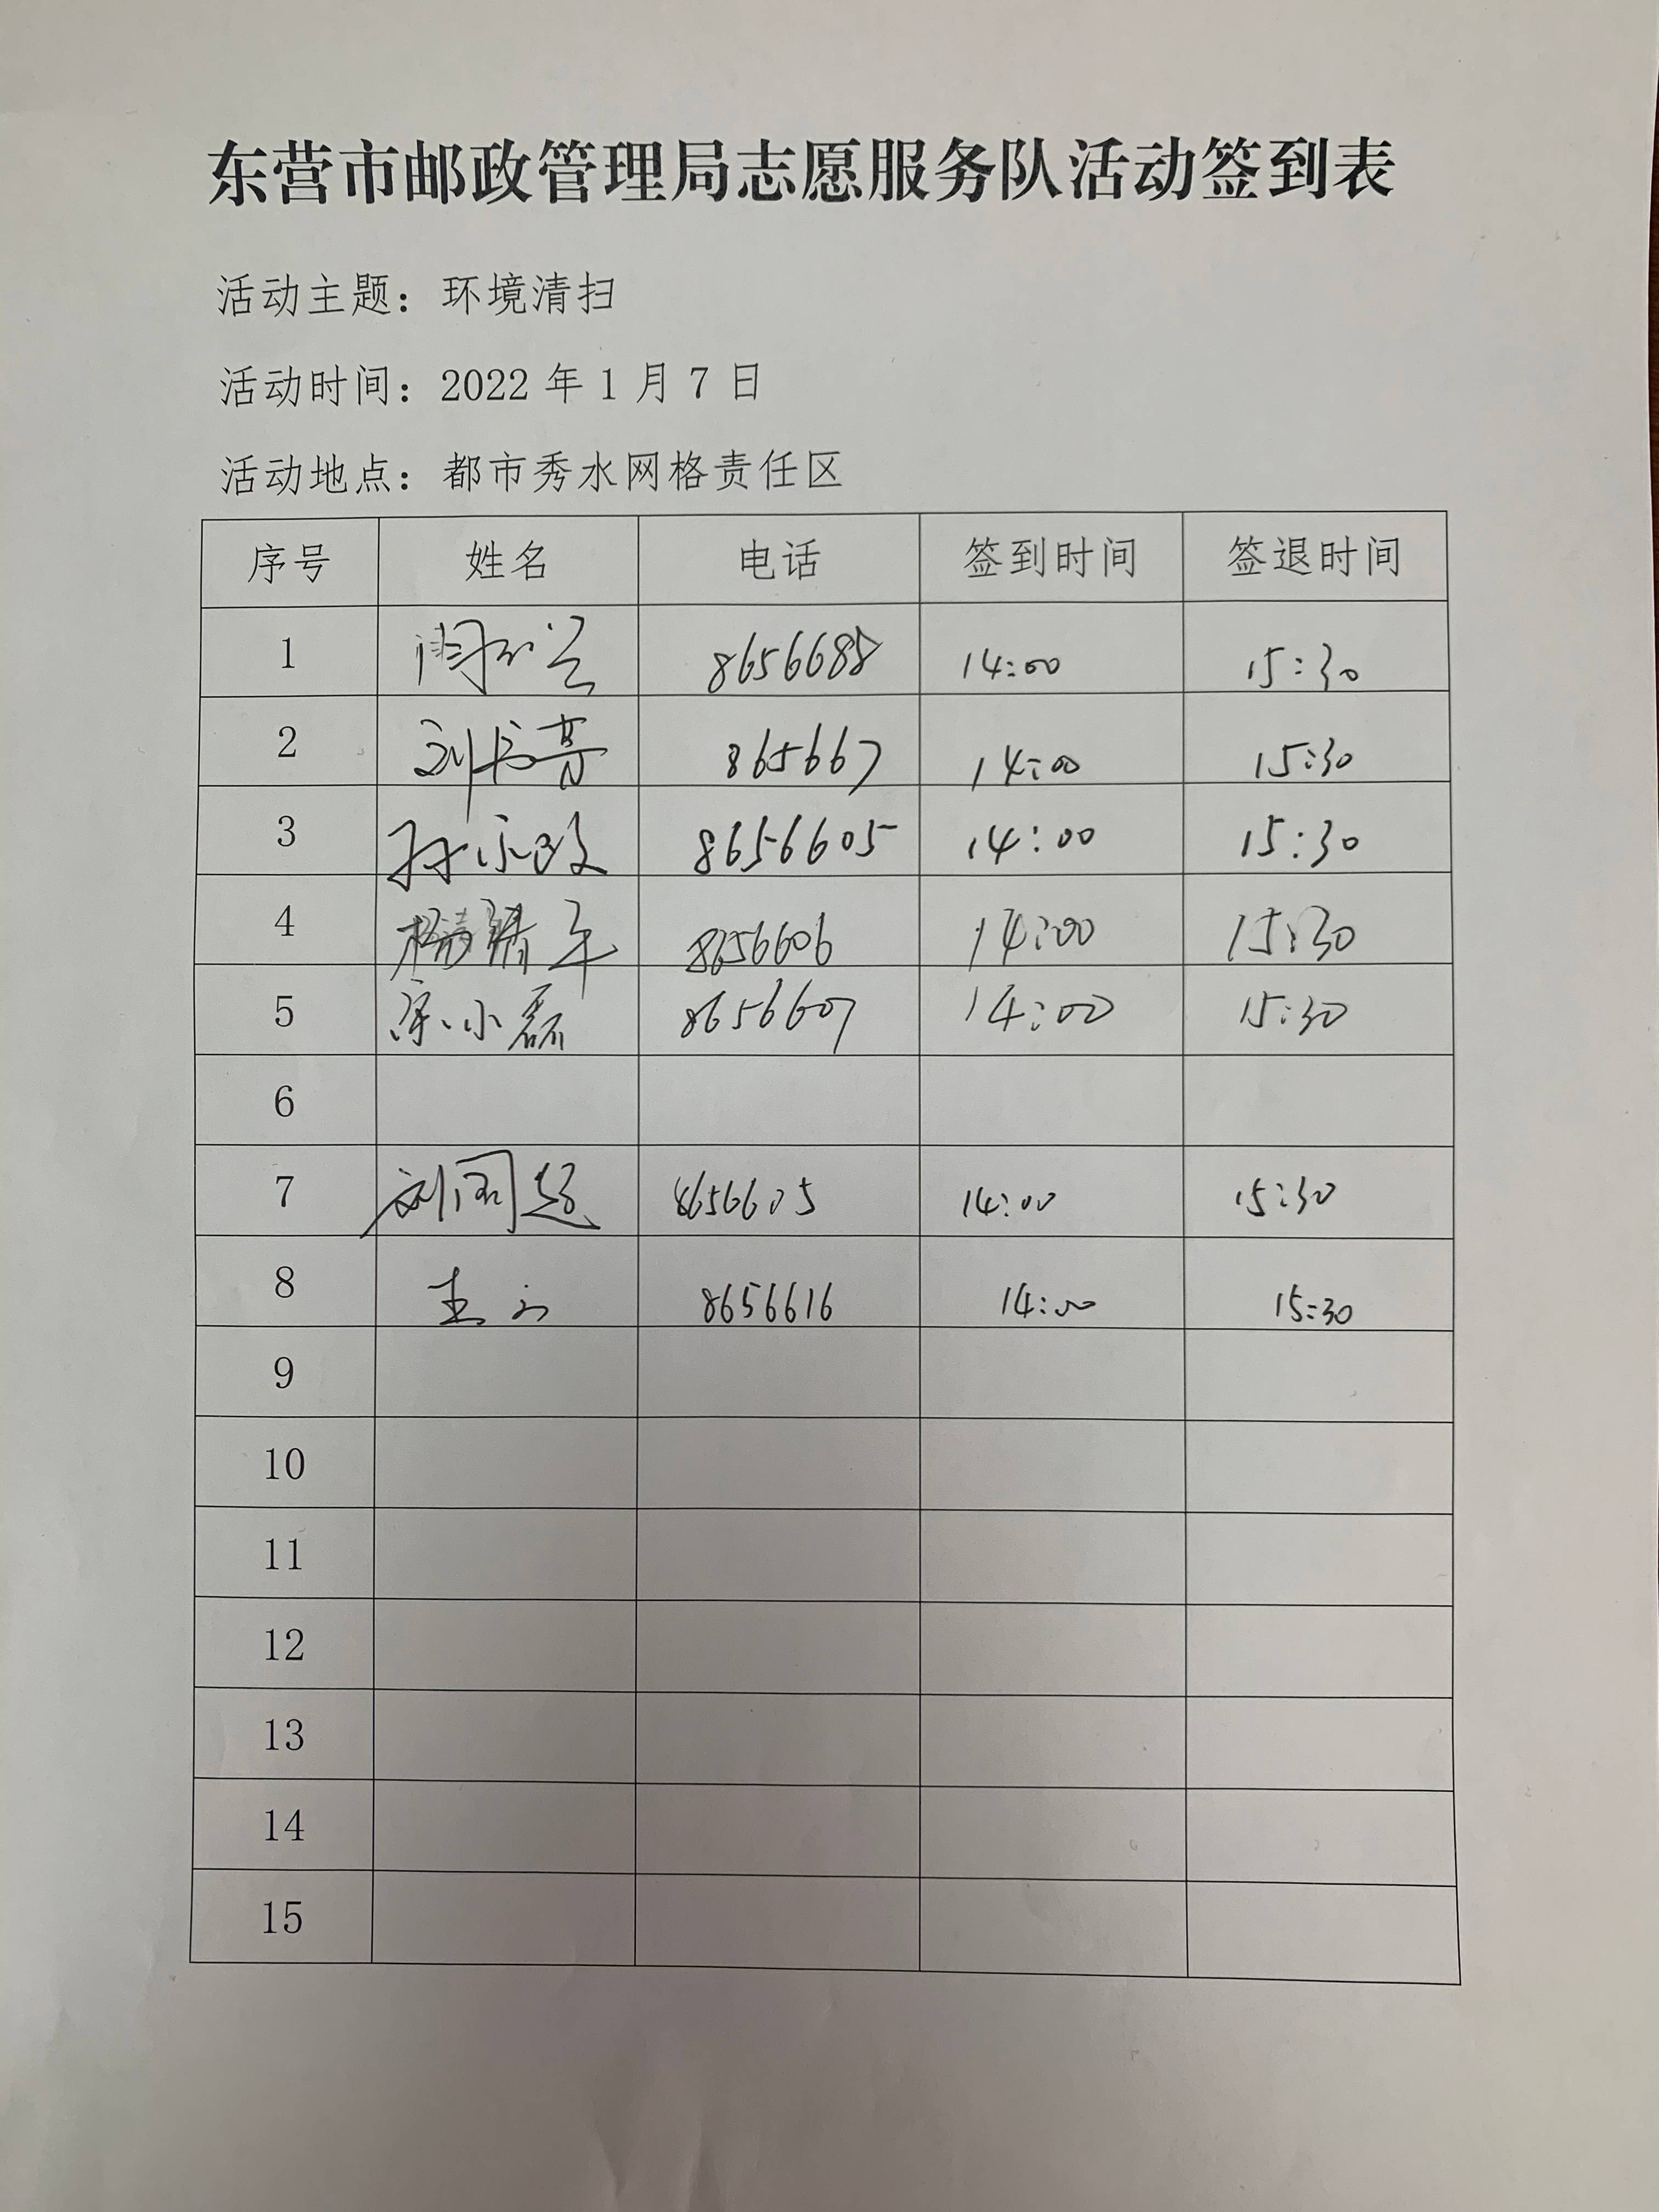 东营市邮政管理局志愿服务队活动签到表
活动主题：环境清扫
活动时间：2022 年 1 月 7 日
活动地点：都市秀水网格责任区
序号 姓名 电话 签到时间 签退时间
1 8656688 14:00 15:30
2 刘 865667 14:00 15:30
3 孙 8656605 14:00 15:30
4 杨 8656606 14:00 15:30
5 宋小磊 8656607 14:00 15:30
6
7 刘国超 8656605 14:00 15:30
8 8656616 14:00 15:30
9
10
11
12
13
14
15